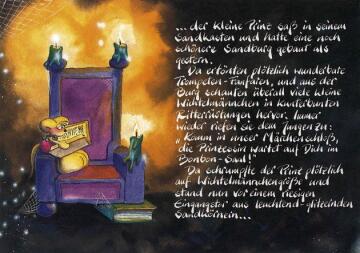 ...der kleine Prinz saß in seinem
Sandkasten und hatte eine noch
schönere Sandburg gebaut als
gestern.
Da ertönten plötzlich wunderbare
Trompeten-Fanfaren, und aus der
Burg schauten überall viele kleine
Wichtelmännchen in kunterbunten
Ritterrüstungen hervor. Immer
wieder riefen sie dem Jungen zu:
"Komm in unser Märchenschloß,
die Prinzessin wartet auf Dich im
Bonbon-Saal!"
Da schrumpfte der Prinz plötzlich
auf Wichtelmännchengröße und
stand nun vor einem riesigen
Eingangstor aus leuchtend-glitzernden
Sandkörnern...